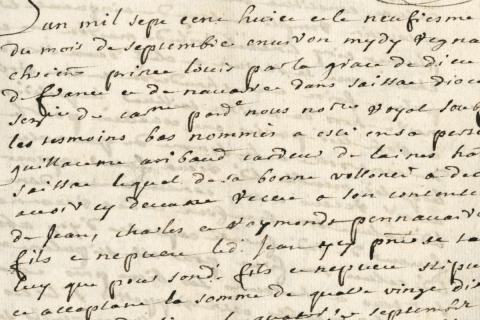 L'an mil sept cent huict et le neufiesme
du mois de septembre environ midy regnan
chrestien prince Louis par la grace de dieu
de france et de navarre dans saissac dioce
senec de carne pard.t nous not.re royal soub
les tesmoins bas nommés a esté en sa perso
guillaume aribaud cardeur de laines ha
saissac lequel de sa bonne volonté a dec
avoir cy devant receu a son contente
de Jean, charles et Raymond pennavaire
fils et nepveu led. Jean icy p̃nt se ta
luy que pour sond. fils et nepveu stipu
et acceptant la somme de quatre vingt dix
septembre